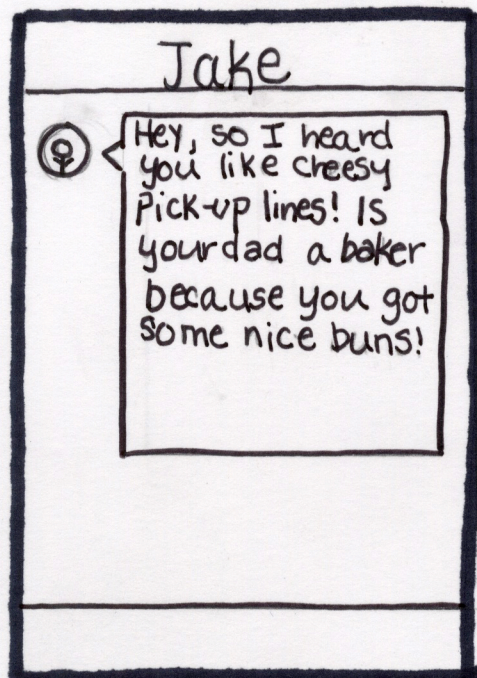 Jake
Hey, so I heard
you like cheesy
Pick-up lines! Is
your dad a baker
because you got
some nice buns!